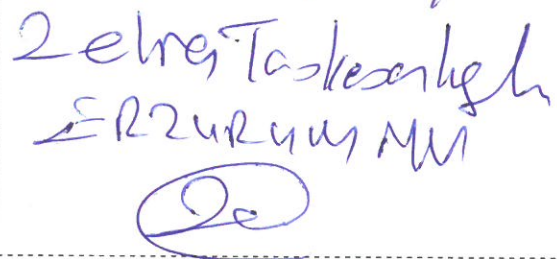 Zehra Taşkesenlioğlu
ERZURUM MV